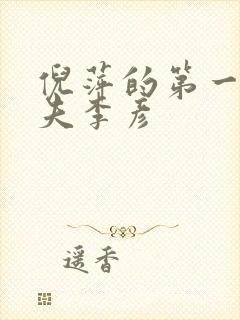 倪萍的第一
夫李彦
遥香